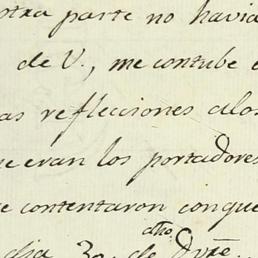 otra parte no havia
de V., me contube e
as reflecciones alos
ue eran los portadores
e contentaron conque
dho.
dia 30 de Dvre.